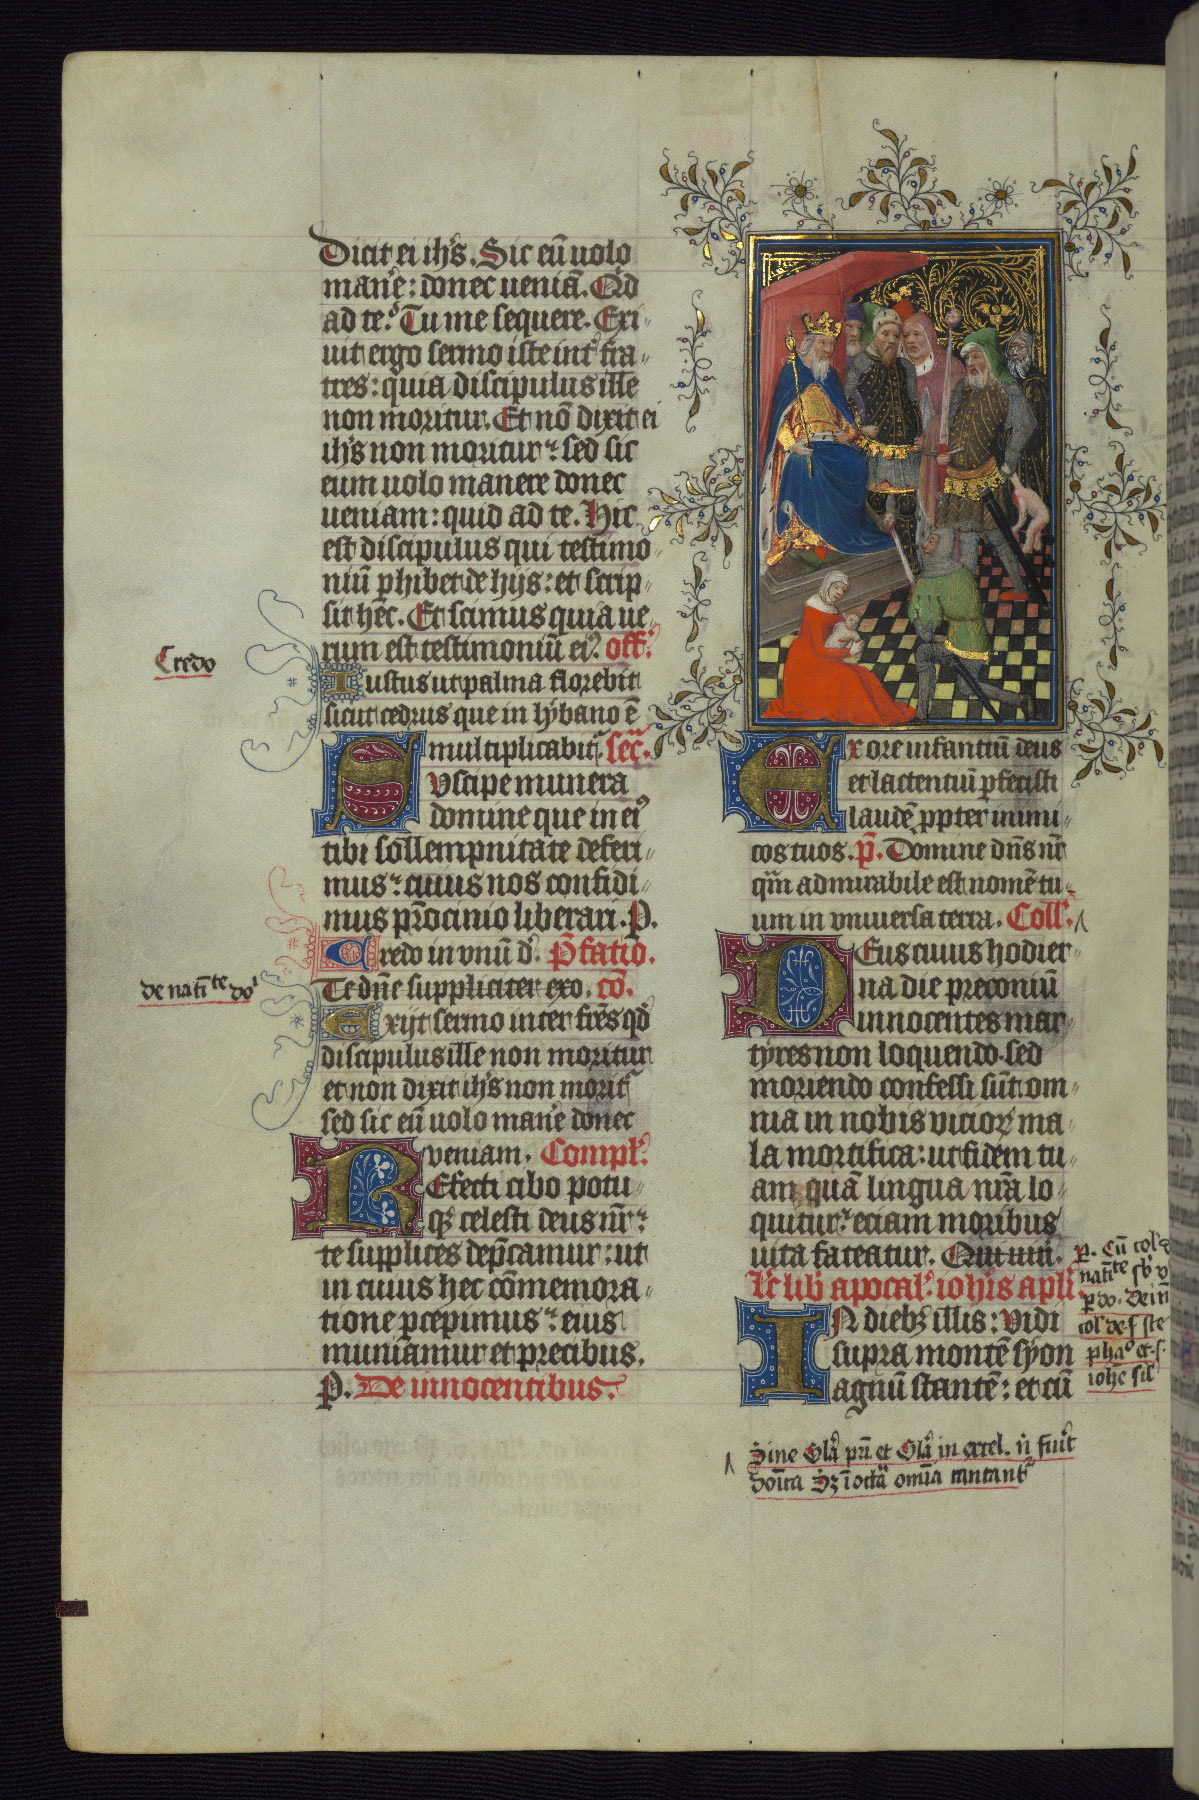 Dicit ei ih's. Sic eū uolo
man'e: donec ueniā. Q'd
ad te.' Tu me sequere. Exi-
uit ergo sermo iste int' fra-
tres: quia discipulus ille
non moritur. Et nō dixit ei
ih's non moritur: sed sic
eum uolo manere donec
ueniam: quid ad te. Hic
est discipulus qui testimo-
niū phibet de hijs: et scrip-
sit hēc. Et scimus quia ue-
rum est testimoniū ei'. off'.
Credo
Iustus ut palma florebit
sicut cedrus que in lybano ē
multiplicabit'. sec'.
Suscipe munera
domine que in ei'
tibi sollempnitate deferi-
mus: cuius nos confidi-
mus p̄rocinio liberari. P.
Credo in vnū d'. P̄fatio.
de nati'te do'
Te dn̄e suppliciter exo. cō.
Exijt sermo inter fr̄es q'd
discipulus ille non moritur
et non dixit ih's non morit'
sed sic eū uolo man'e donec
veniam. Compl'.
REfecti cibo potu-
q3 celesti deus nr̄:
te supplices dep̄camur: ut
in cuius hec cōmemora-
tione p̄cepimus: eius
muniamur et precibus.
P. De innocentibus.
Ex ore infantiū deus
et lactentiū pfecisti
laudē ppter inimi-
cos tuos. p̄. Domine dn̄s nr̄
qm̄ admirabile est nomē tu-
um in vniuersa terra. Coll'.
DEus cuius hodier-
na die preconiū
innocentes mar-
tyres non loquendo. sed
moriendo confessi sūt: om-
nia in nobis vicior' ma-
la mortifica: ut fidem tu-
am quā lingua nr̄a lo-
quitur: eciam moribus
uita fateatur. Qui uiu'.
p. Cū col'
nati'te sb' v
p do. De in
col' de s ste
pha° et. s.
iohe sil'
Lc̄ lib' apocal'. ioh'is apl'i.
IN dieb3 illis: vidi
supra montē syon
agnū stantē: et cū
Sine Gl'a pr̄i et Gl'a in excel. n' fu'it
do'ica S3 ī octa' omīa cantant'